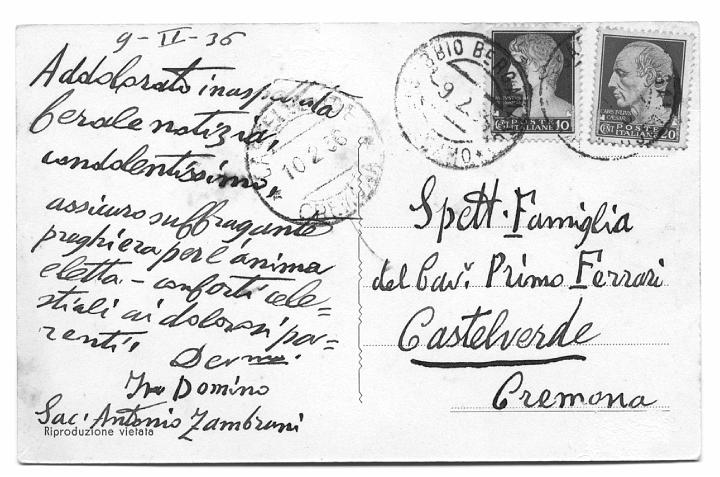 9-II-36
Addolorato inaspettata
ferale notizia,
condolentissimo,
assicuro suffragante
preghiera per l'anima
eletta - conforti cele-
stiali ai dolorosi pa-
renti,
Dev.mo
Domino
Sac. Antonio Zambruni
Riproduzione vietata
CASTELVERDE
10.2.36
CREMONA
9.2.36
POSTE
ITALIANE
CENT 10
POSTE
ITALIANE
CENT 20
Spett. Famiglia
del Cav. Primo Ferrari
Castelverde
Cremona